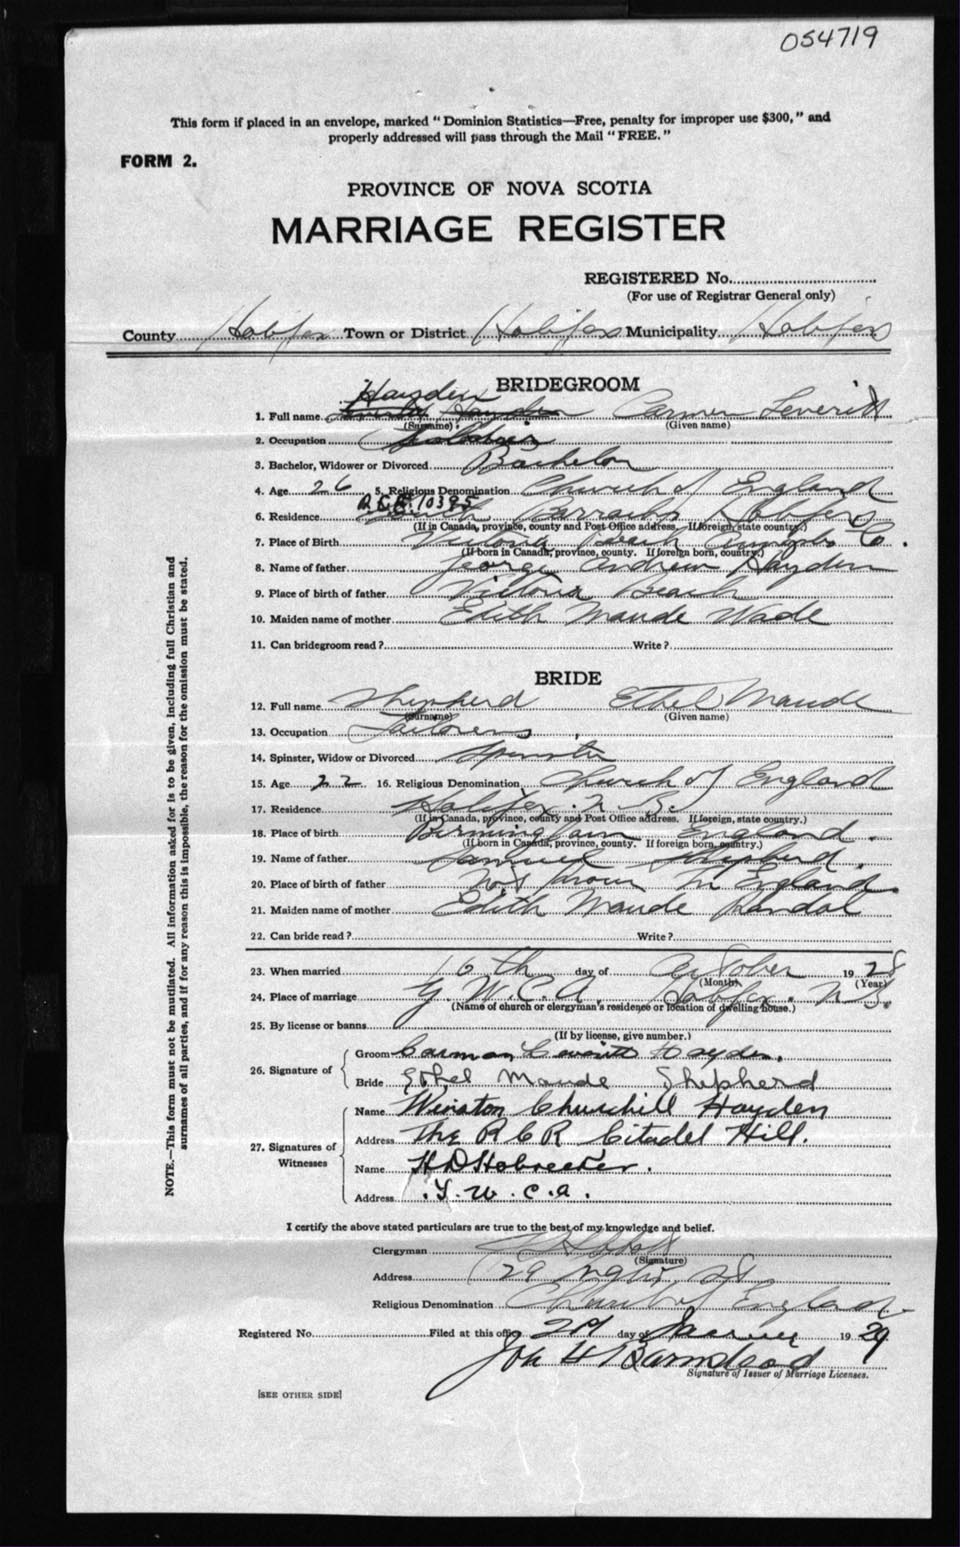 054719
This form if placed in an envelope, marked "Dominion Statistics—Free, penalty for improper use $300," and
properly addressed will pass through the Mail "FREE."
FORM 2.
PROVINCE OF NOVA SCOTIA
MARRIAGE REGISTER
REGISTERED No.
(For use of Registrar General only)
County Halifax Town or District Halifax Municipality Halifax
BRIDEGROOM
Hayden
1. Full name Hayden Carmen Leveritt
(Surname) (Given name)
2. Occupation
3. Bachelor, Widower or Divorced Bachelor
4. Age 26 5. Religious Denomination Church of England
R.C.R. 10395
6. Residence Barracks Halifax
(If in Canada, province, county and Post Office address. If foreign state country.)
7. Place of Birth Victoria Beach Annapolis Co.
(If born in Canada, province, county. If foreign born, country.)
8. Name of father George Andrew Hayden
9. Place of birth of father Victoria Beach
10. Maiden name of mother Edith Maude Wade
11. Can bridegroom read? Write?
BRIDE
12. Full name Shepherd Ethel Maude
(Surname) (Given name)
13. Occupation Tailoress
14. Spinster, Widow or Divorced Spinster
15. Age 22 16. Religious Denomination Church of England
17. Residence Halifax N.S.
(If in Canada, province, county and Post Office address. If foreign, state country.)
18. Place of birth Birmingham England.
(If born in Canada, province, county. If foreign born, country.)
19. Name of father Samuel Shepherd.
20. Place of birth of father Not known In England
21. Maiden name of mother Edith Maude Randal
22. Can bride read? Write?
23. When married 16th day of October 1928
(Month) (Year)
24. Place of marriage Y.W.C.A. Halifax. N.S.
(Name of church or clergyman's residence or location of dwelling house.)
25. By license or banns
(If by license, give number.)
26. Signature of
Groom Carman Leveritt Hayden.
Bride Ethel Maude Shepherd
27. Signatures of
Witnesses
Name Winston Churchill Hayden
Address The R C R Citadel Hill.
Name H D
Address .Y.W.C.A.
I certify the above stated particulars are true to the best of my knowledge and belief.
Clergyman
(Signature)
Address 29 St
Religious Denomination Church of England
Registered No. Filed at this office 2nd day of 1929
Barnstead
Signature of Issuer of Marriage Licenses.
[SEE OTHER SIDE]
NOTE.—This form must not be mutilated. All information asked for is to be given, including full Christian and
surnames of all parties, and if for any reason this is impossible, the reason for the omission must be stated.